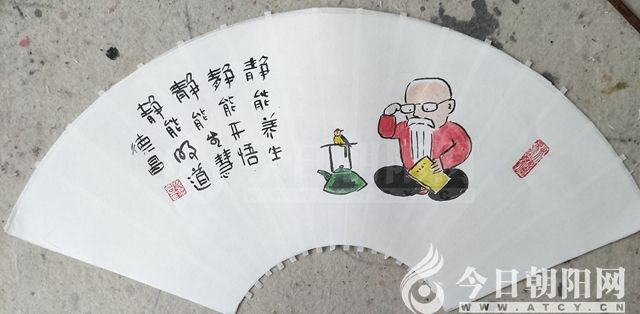 静能养生
静能开悟
静能生慧
静能明道
德昌
今日朝阳网
WWW.ATCY.CN